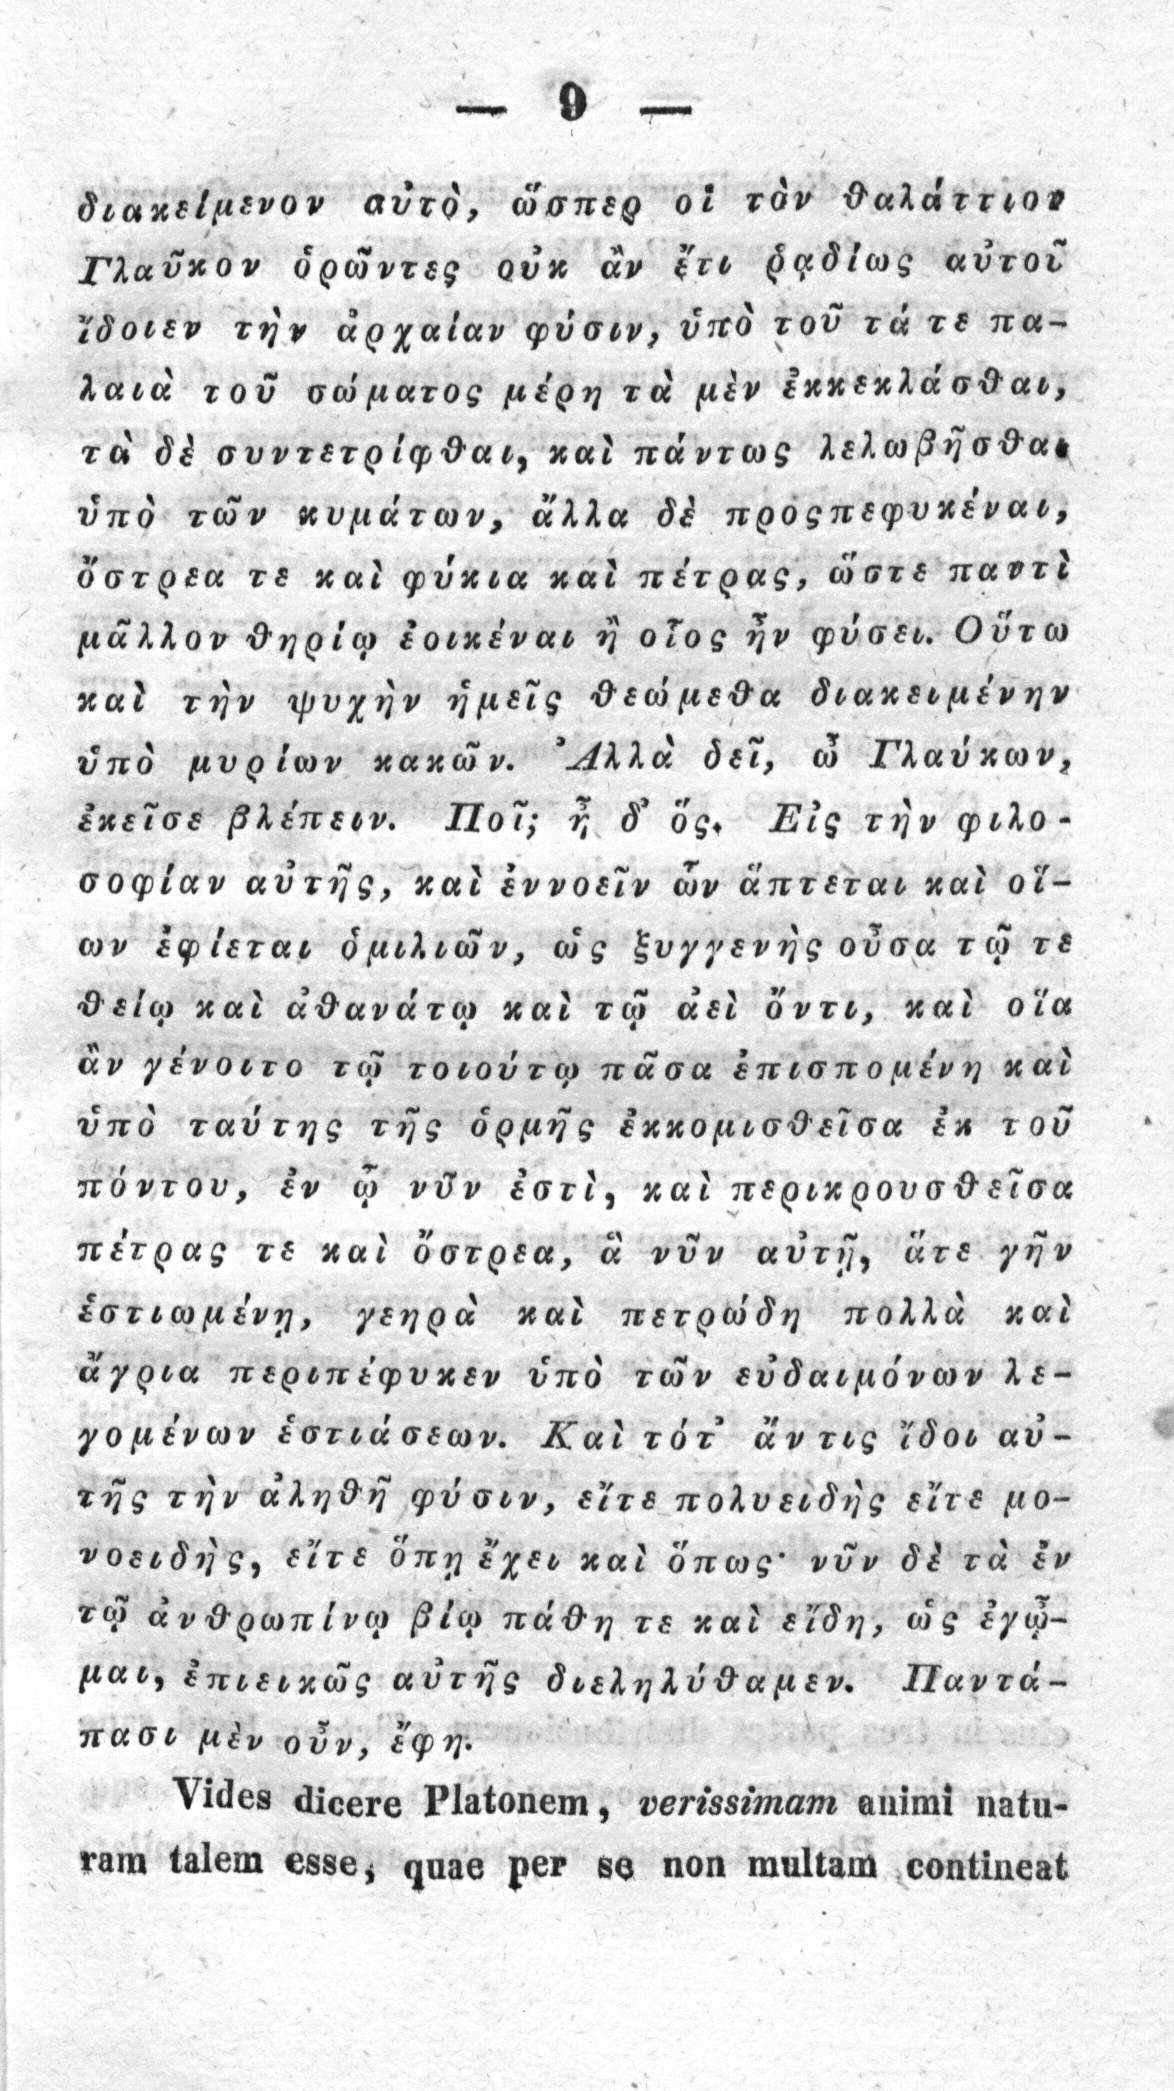 — 9 —
διακείμενον αὐτὸ, ὥσπερ οἱ τὸν θαλάττιον
Γλαῦκον ὁρῶντες οὐκ ἂν ἔτι ῥᾳδίως αὐτοῦ
ἴδοιεν τὴν ἀρχαίαν φύσιν, ὑπὸ τοῦ τά τε πα-
λαιὰ τοῦ σώματος μέρη τὰ μὲν ἐκκεκλάσθαι,
τὰ δὲ συντετρίφθαι, καὶ πάντως λελωβῆσθαι
ὑπὸ τῶν κυμάτων, ἄλλα δὲ προςπεφυκέναι,
ὄστρεα τε καὶ φύκια καὶ πέτρας, ὥστε παντὶ
μᾶλλον θηρίῳ ἐοικέναι ἢ οἷος ἦν φύσει. Οὕτω
καὶ τὴν ψυχὴν ἡμεῖς θεώμεθα διακειμένην
ὑπὸ μυρίων κακῶν. Ἀλλὰ δεῖ, ὦ Γλαύκων,
ἐκεῖσε βλέπειν. Ποῖ; ἦ δ' ὅς. Εἰς τὴν φιλο-
σοφίαν αὐτῆς, καὶ ἐννοεῖν ὧν ἅπτεται καὶ οἵ-
ων ἐφίεται ὁμιλιῶν, ὡς ξυγγενὴς οὖσα τῷ τε
θείῳ καὶ ἀθανάτῳ καὶ τῷ ἀεὶ ὄντι, καὶ οἵα
ἂν γένοιτο τῷ τοιούτῳ πᾶσα ἐπισπομένη καὶ
ὑπὸ ταύτης τῆς ὁρμῆς ἐκκομισθεῖσα ἐκ τοῦ
πόντου, ἐν ᾧ νῦν ἐστὶ, καὶ περικρουσθεῖσα
πέτρας τε καὶ ὄστρεα, ἃ νῦν αὐτῇ, ἅτε γῆν
ἑστιωμένῃ, γεηρὰ καὶ πετρώδη πολλὰ καὶ
ἄγρια περιπέφυκεν ὑπὸ τῶν εὐδαιμόνων λε-
γομένων ἑστιάσεων. Καὶ τότ' ἄν τις ἴδοι αὐ-
τῆς τὴν ἀληθῆ φύσιν, εἴτε πολυειδὴς εἴτε μο-
νοειδὴς, εἴτε ὅπῃ ἔχει καὶ ὅπως· νῦν δὲ τὰ ἐν
τῷ ἀνθρωπίνῳ βίῳ πάθη τε καὶ εἴδη, ὡς ἐγᾦ-
μαι, ἐπιεικῶς αὐτῆς διεληλύθαμεν. Παντά-
πασι μὲν οὖν, ἔφη.
Vides dicere Platonem, verissimam animi natu-
ram talem esse, quae per se non multam contineat